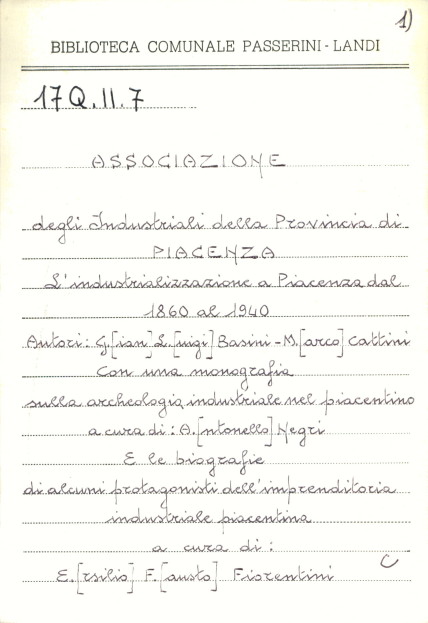 1)
BIBLIOTECA COMUNALE PASSERINI - LANDI
17Q.II.7
ASSOCIAZIONE
degli Industriali della Provincia di
PIACENZA
L'industrializzazione a Piacenza dal
1860 al 1940
Autori: G.[ian] L.[uigi] Basini - M.[arco] Cattini
Con una monografia
sulla archeologia industriale nel piacentino
a cura di: A.[ntonello] Negri
E le biografie
di alcuni protagonisti dell'imprenditoria
industriale piacentina
a cura di:
E.[rsilio] F.[austo] Fiorentini
C